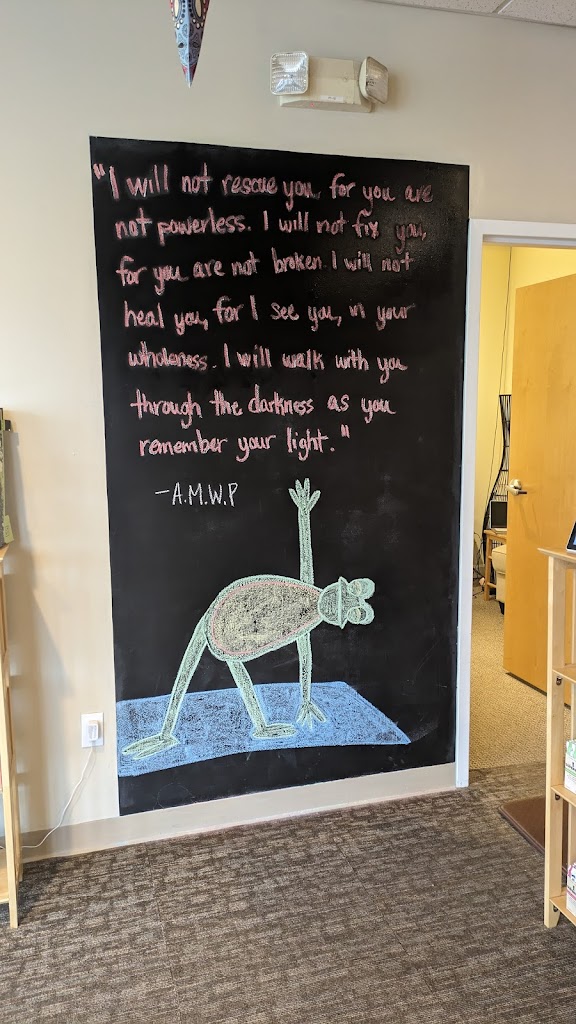 "I will not rescue you, for you are
not powerless. I will not fix you,
for you are not broken. I will not
heal you, for I see you, in your
wholeness. I will walk with you
through the darkness as you
remember your light."
-A.M.W.P